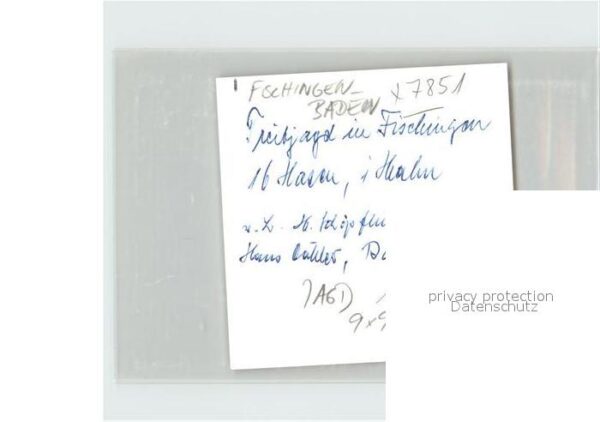 FSCHINGEN-
BADEN x 7851
Treibjagd in Fischingen
16 Hasen, 1 Hahn
v. L. H. Schöpflin
Hans
JAGD
9x9
privacy protection
Datenschutz